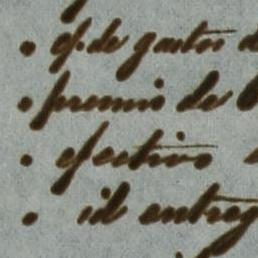 . ef. de gastos
. premio de
. efectivo
. id entreg